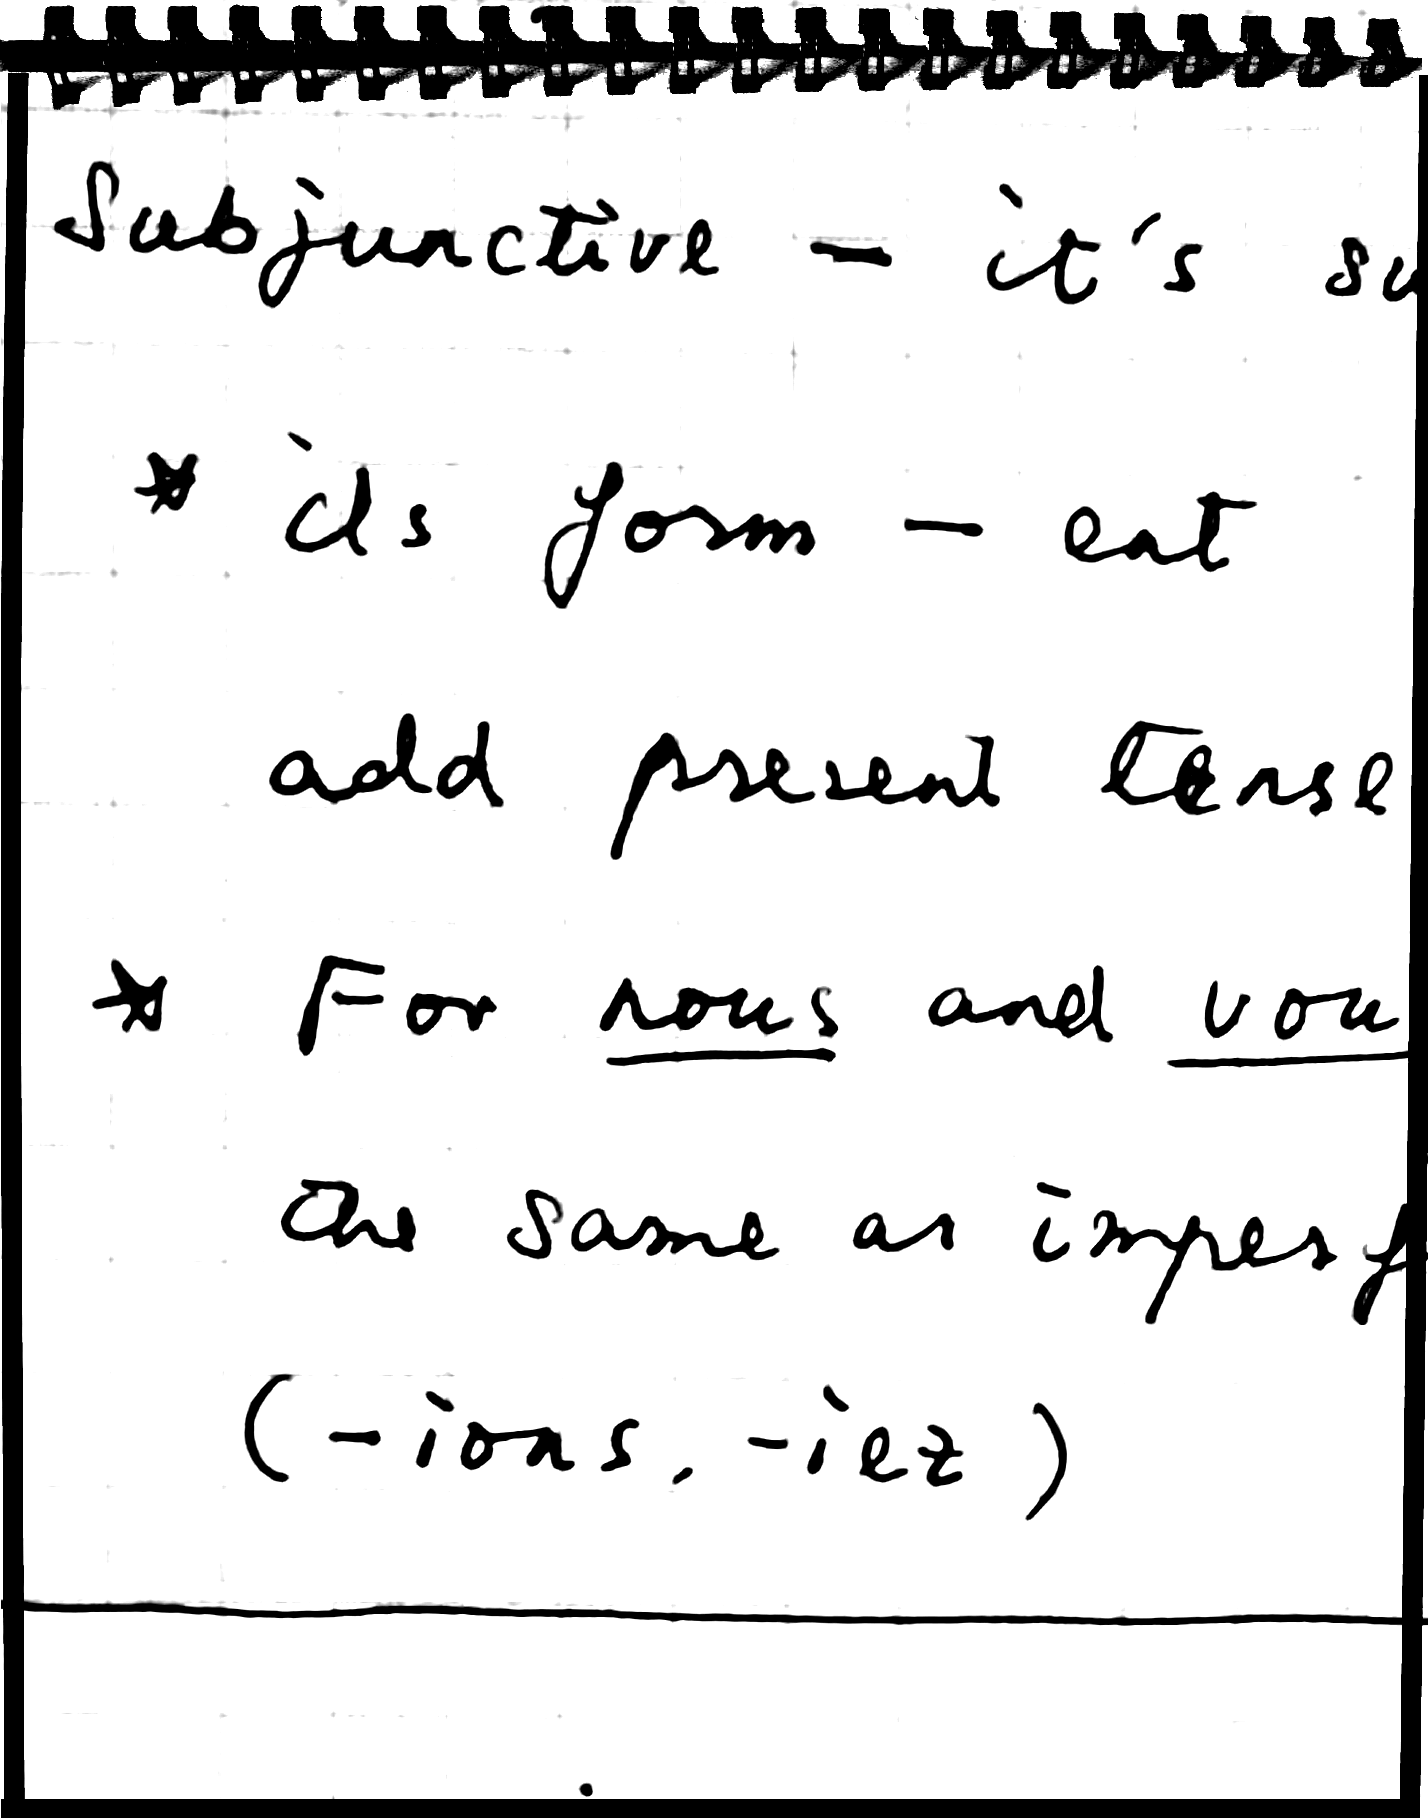 Subjunctive - it's su
* ils form - ent
add present tense
* For nous and vou
the same as imperf
(-ions, -iez)